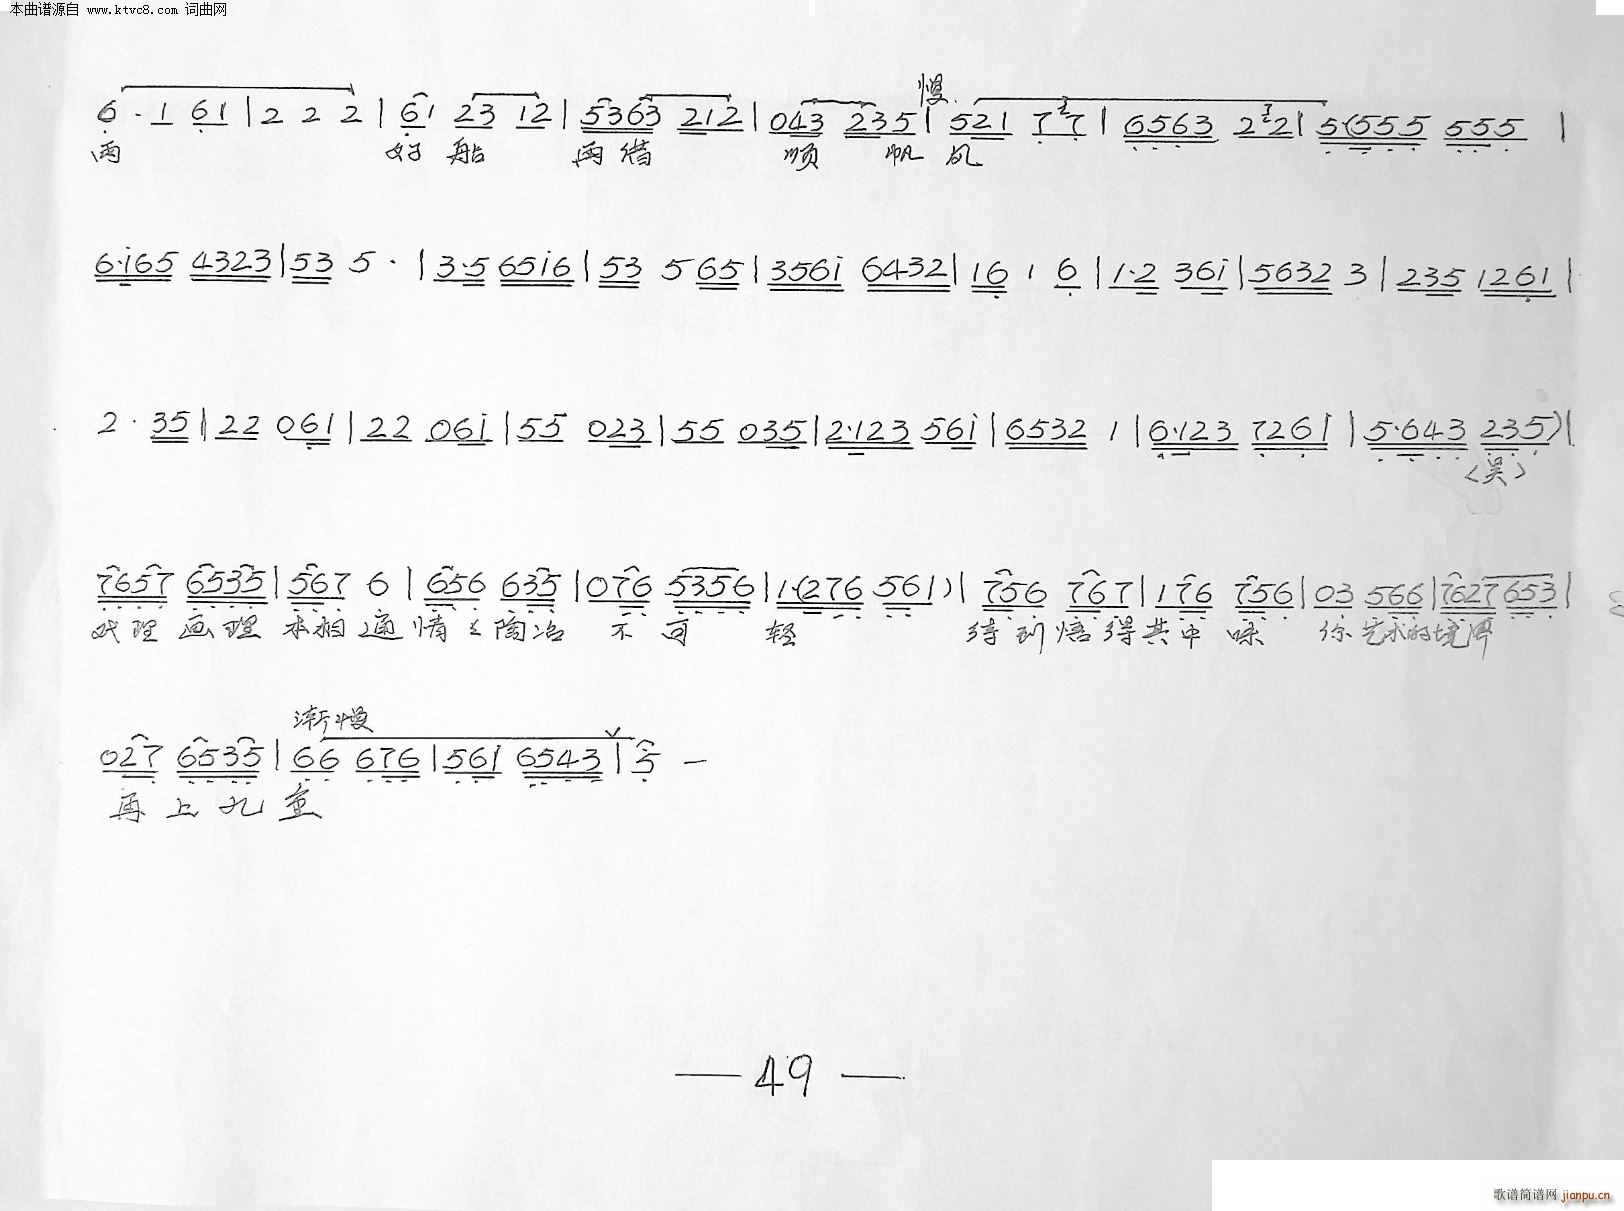 本曲谱源自 www.ktvc8.com 词曲网
慢
6·1 61|2 2 2|61 23 12|5363 212|043 235|521 77|6563 22|5(555 555|
好 船 再借 顺 帆 风
6·i65 4323|53 5·|3·5 65i6|53 565|356i 6432|16 1 6|1·2 36i|5632 3|235 1261|
2·35|22 061|22 06i|55 023|55 035|2·123 56i|6532 1|6·123 7261|5·643 235)|
(吴)
7657 6535|567 6|656 635|076 5356|1(276 561)|756 767|176 756|03 566|7627653|
戏理 画理 本相通 情之陶冶 不可 轻 待到悟得其中味 你艺术的境界
渐慢
027 6535|66 676|561 6543|5 —
再上九重
— 49 —
歌谱简谱网 jianpu.cn